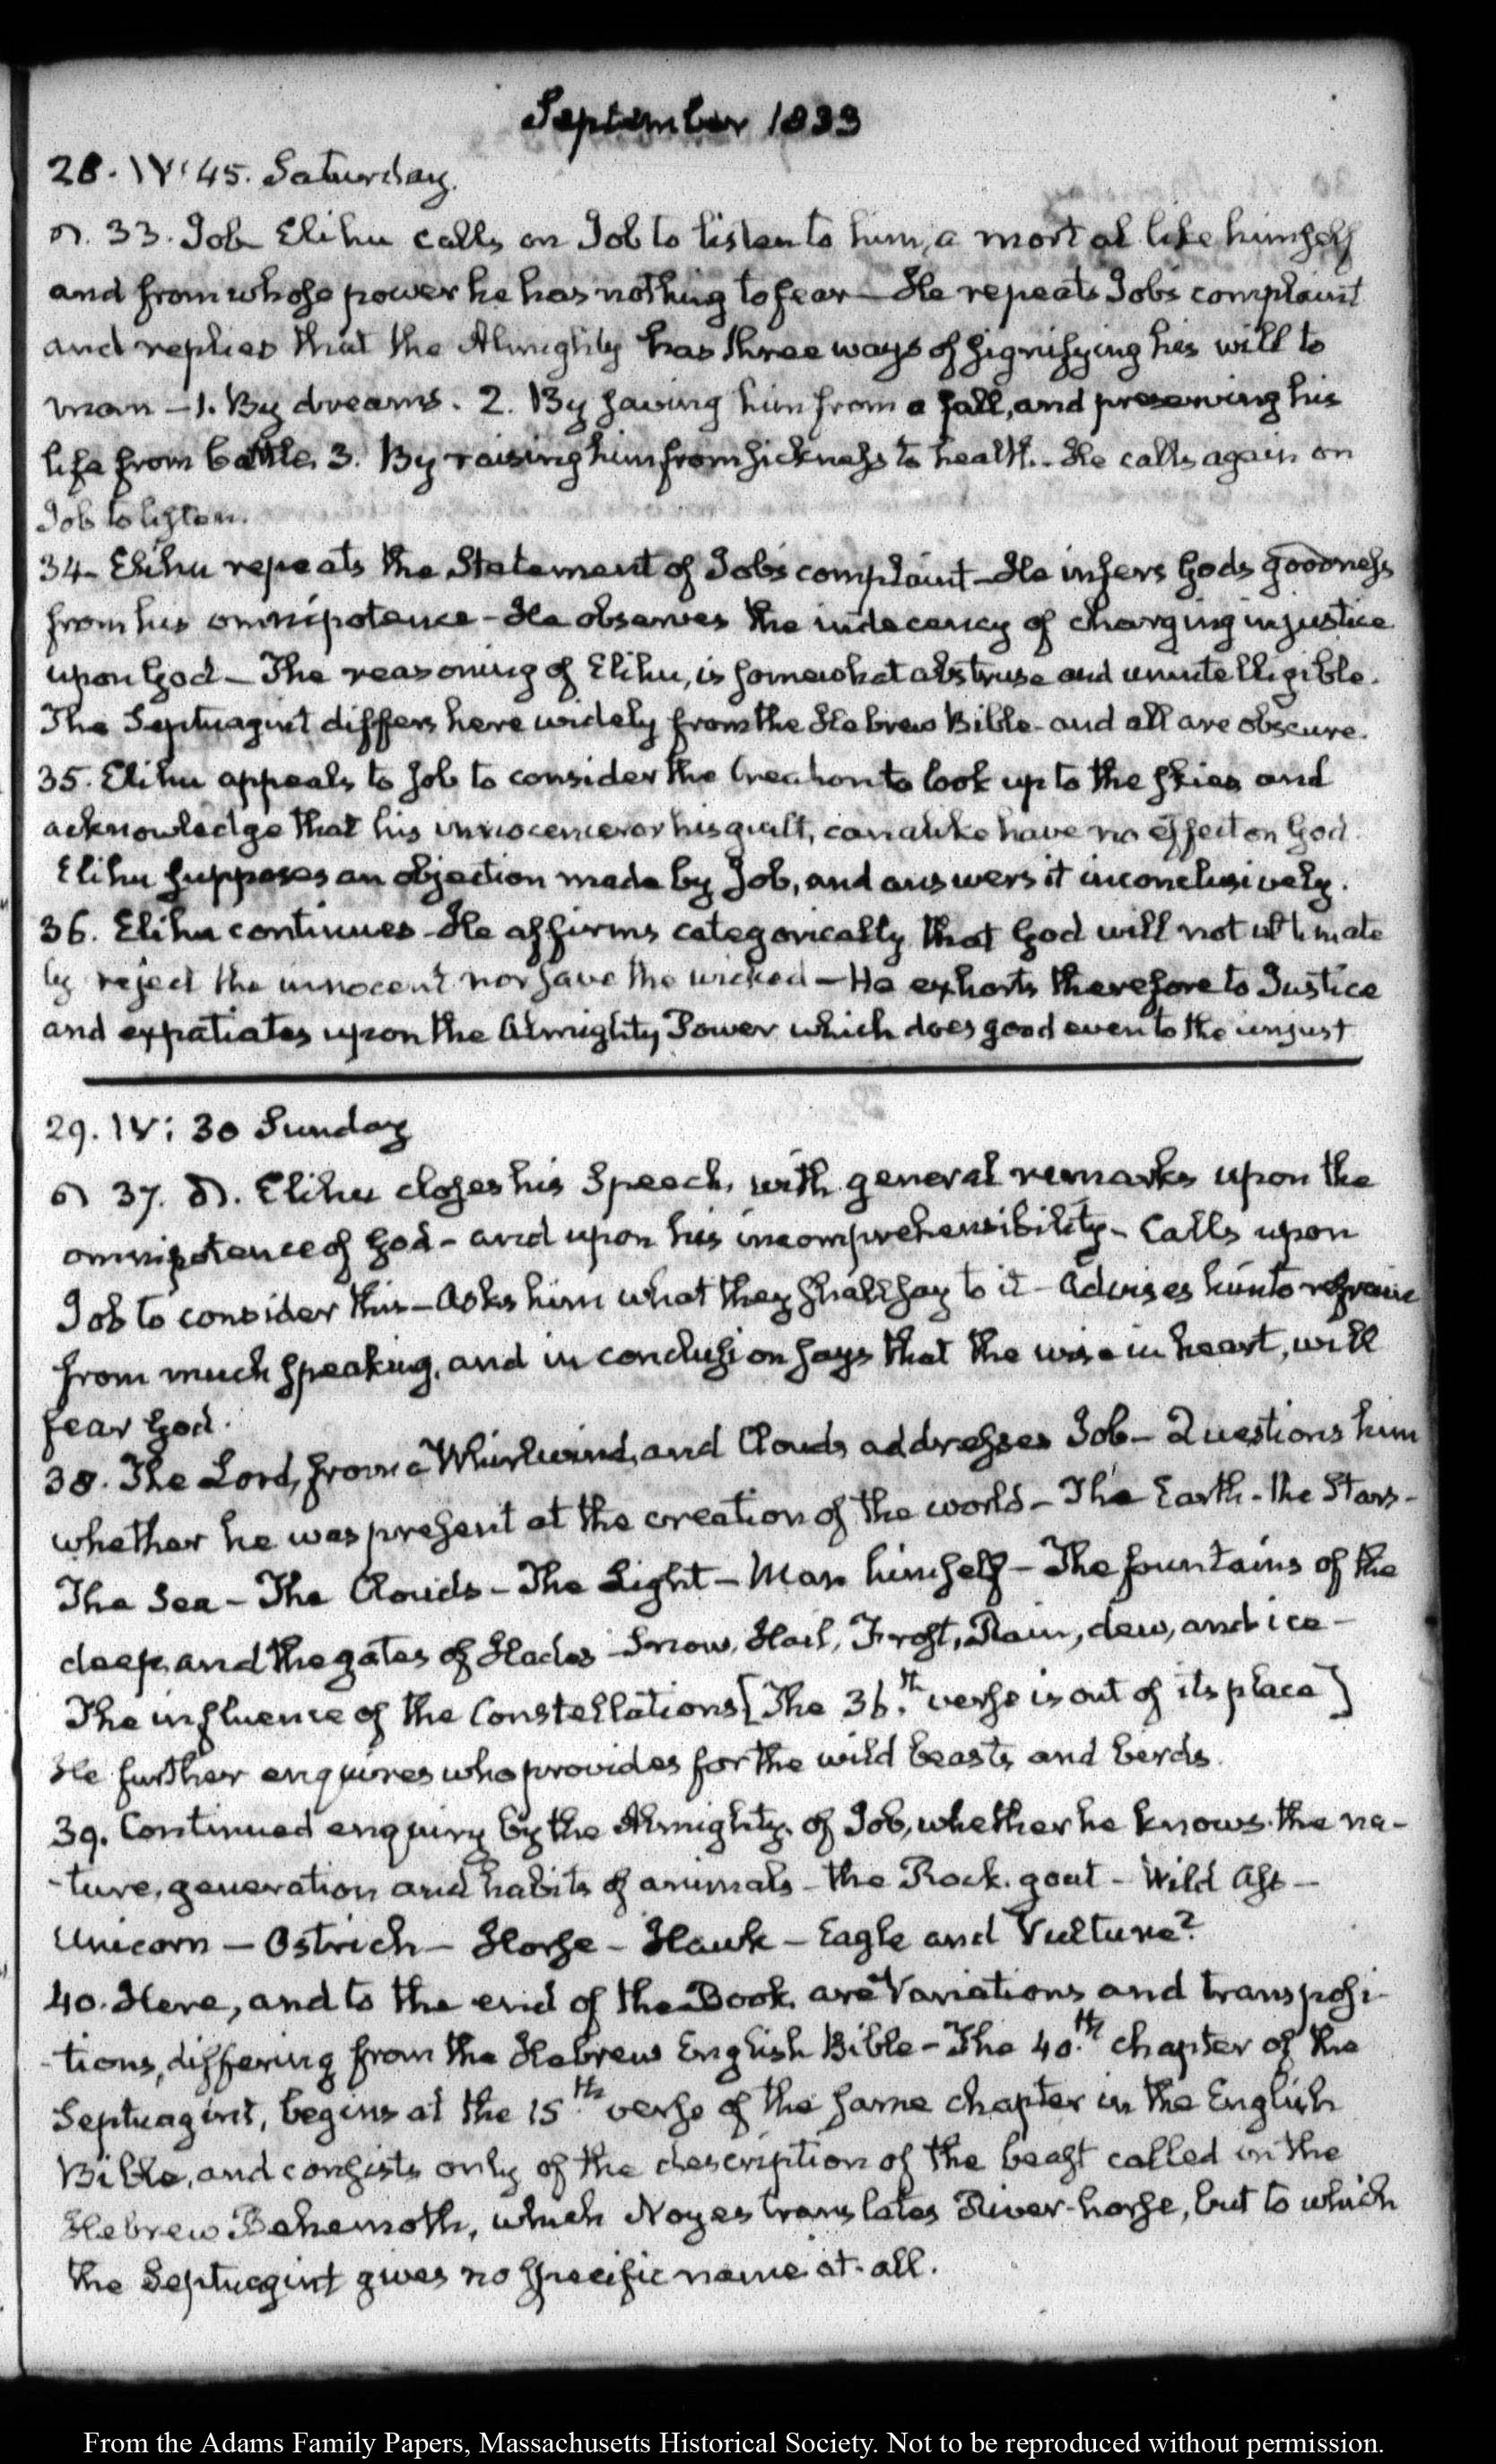 September 1833
28. IV:45. Saturday.
33. Job Elihu calls on Job to listen to him, a mortal like himself
and from whose power he has nothing to fear — He repeats Jobs complaint
and replies that the Almighty has three ways of signifying his will to
man — 1. By dreams. 2. By saving him from a fall, and preserving his
life from battle, 3. By raising him from sickness to health. He calls again on
Job to listen.
34 – Elihu repeats the Statement of Job's complaint – He infers Gods goodness
from his omnipotence – He observes the indecency of charging injustice
upon God – The reasoning of Elihu, is somewhat abstruse and unintelligible.
The Septuagint differs here widely from the Hebrew Bible – and all are obscure.
35. Elihu appeals to Job to consider the Creation to look up to the skies and
acknowledge that his innocence or his guilt, can alike have no effect on God.
Elihu supposes an objection made by Job, and answers it inconclusively.
36. Elihu continues – He affirms categorically that God will not ultimate
ly reject the innocent nor save the wicked – He exhorts therefore to Justice
and expatiates upon the Almighty Power which does good even to the unjust
29. IV: 30 Sunday
37. Elihu closes his Speech, with general remarks upon the
omnipotence of God – and upon his incomprehensibility – Calls upon
Job to consider this – Asks him what they shall say to it – Advises him to refrain
from much speaking, and in conclusion says that the wise in heart, will
fear God.
38. The Lord, from a Whirlwind, and Clouds addresses Job – Questions him
whether he was present at the creation of the world – The Earth – the Stars –
The Sea – The Clouds – The Light – Man himself – The fountains of the
deep, and the gates of Hades – Snow, Hail, Frost, Rain, dew, and ice –
The influence of the Constellations [The 36.th verse is out of its place]
He further enquires who provides for the wild beasts and birds.
39. Continued enquiry by the Almighty, of Job, whether he knows the na-
-ture, generation and habits of animals – the Rock goat – Wild Ass –
Unicorn – Ostrich – Horse – Hawk – Eagle and Vulture?
40. Here, and to the end of the Book are Variations and transposi-
-tions, differing from the Hebrew English Bible – The 40.th chapter of the
Septuagint, begins at the 15.th verse of the same chapter in the English
Bible, and consists only of the description of the beast called in the
Hebrew Behemoth, which Noyes translates River-horse, but to which
the Septuagint gives no specific name at all.
From the Adams Family Papers, Massachusetts Historical Society. Not to be reproduced without permission.